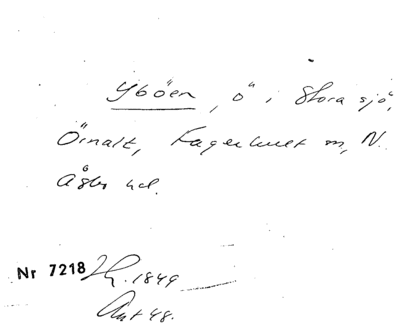 Yböen, ö i Stora sjö,
Örnalt, Fagerhult sn, N.
Åsbo hd.
Nr 7218 1849
Ant 48.